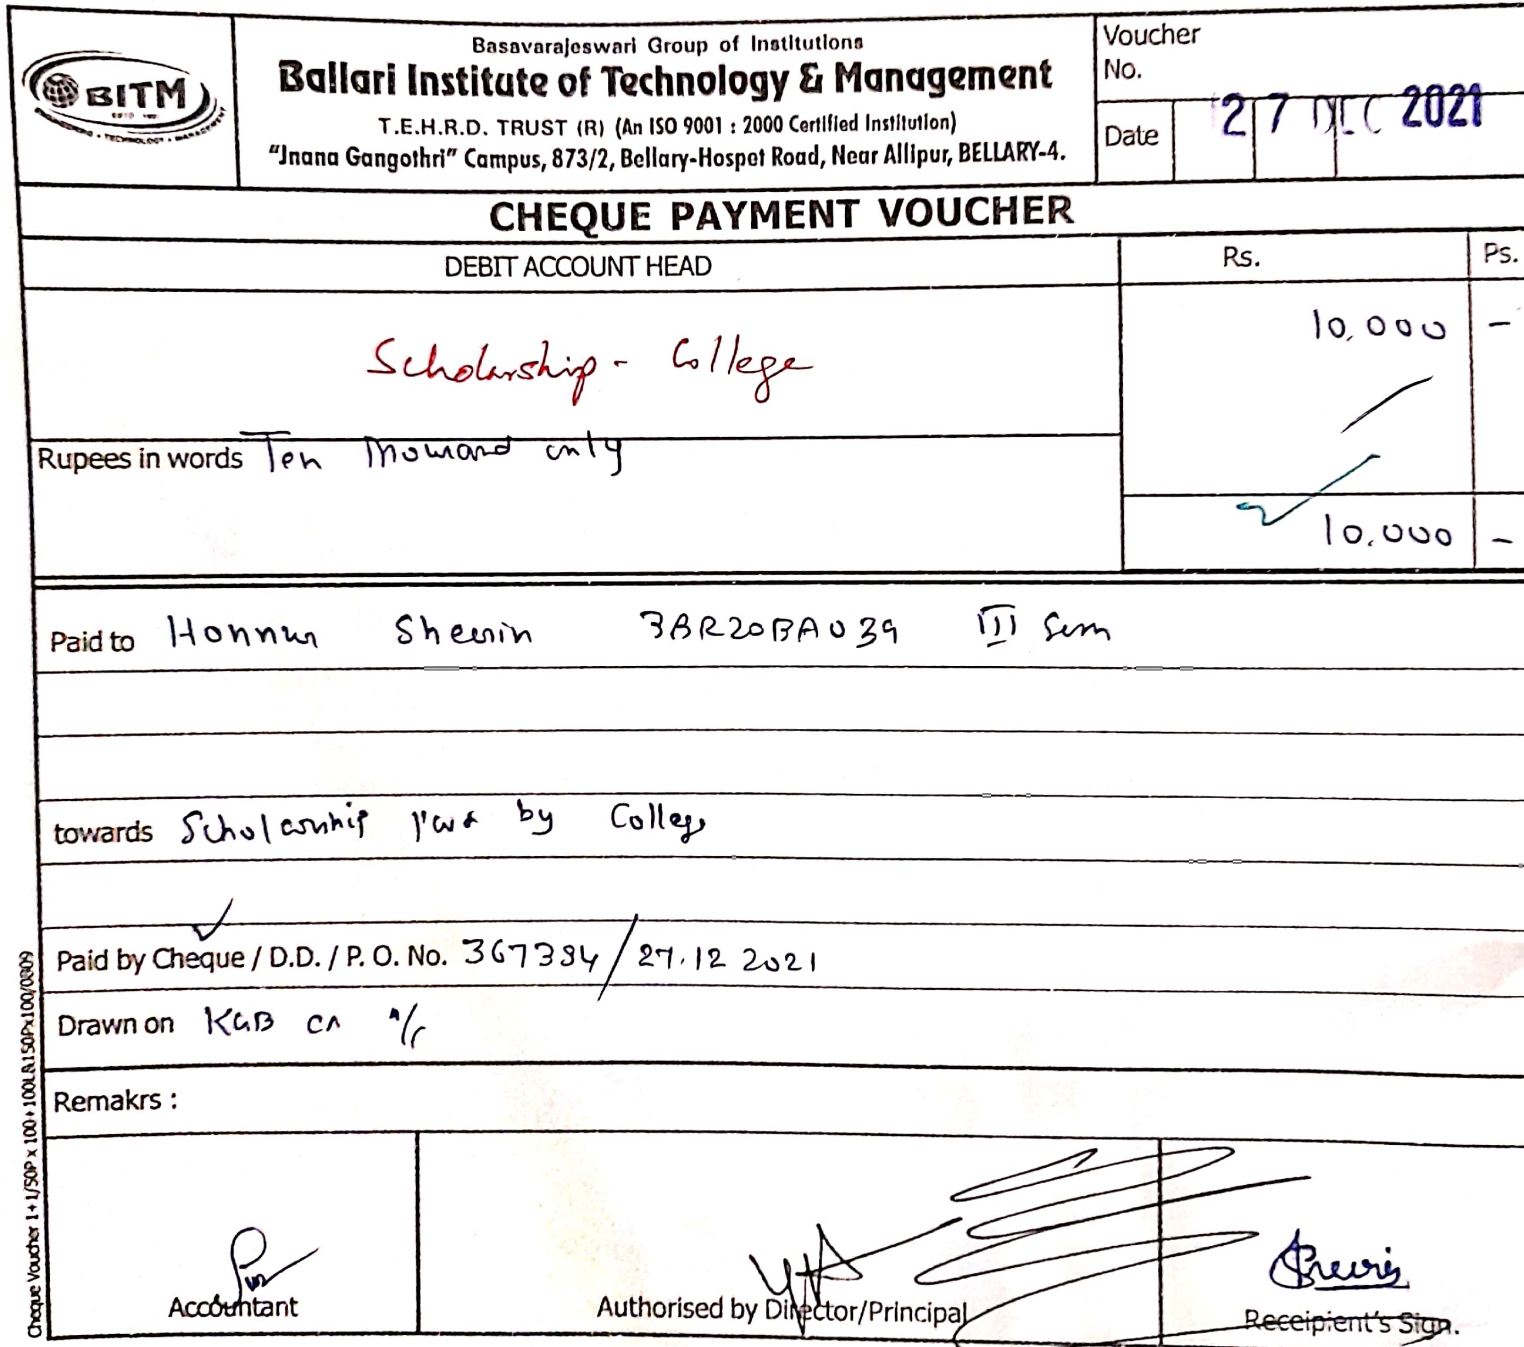 Basavarajeswari Group of Institutions
Ballari Institute of Technology & Management
T.E.H.R.D. TRUST (R) (An ISO 9001 : 2000 Certified Institution)
"Jnana Gangothri" Campus, 873/2, Bellary-Hospet Road, Near Allipur, BELLARY-4.
BITM
Voucher
No.
Date 27 DEC 2021
CHEQUE PAYMENT VOUCHER
DEBIT ACCOUNT HEAD Rs. Ps.
Scholarship - College 10,000 -
Rupees in words Ten Thousand only
10,000 -
Paid to Honnur Sheerin 3BR20BA039 III Sem
towards Scholarship by College
Paid by Cheque / D.D. / P. O. No. 367384 / 27.12 2021
Drawn on KGB CA A/c
Remakrs :
Accountant
Authorised by Director/Principal
Receipient's Sign.
Cheque Voucher 1+1/50P x 100+100LBx150Px100/0809